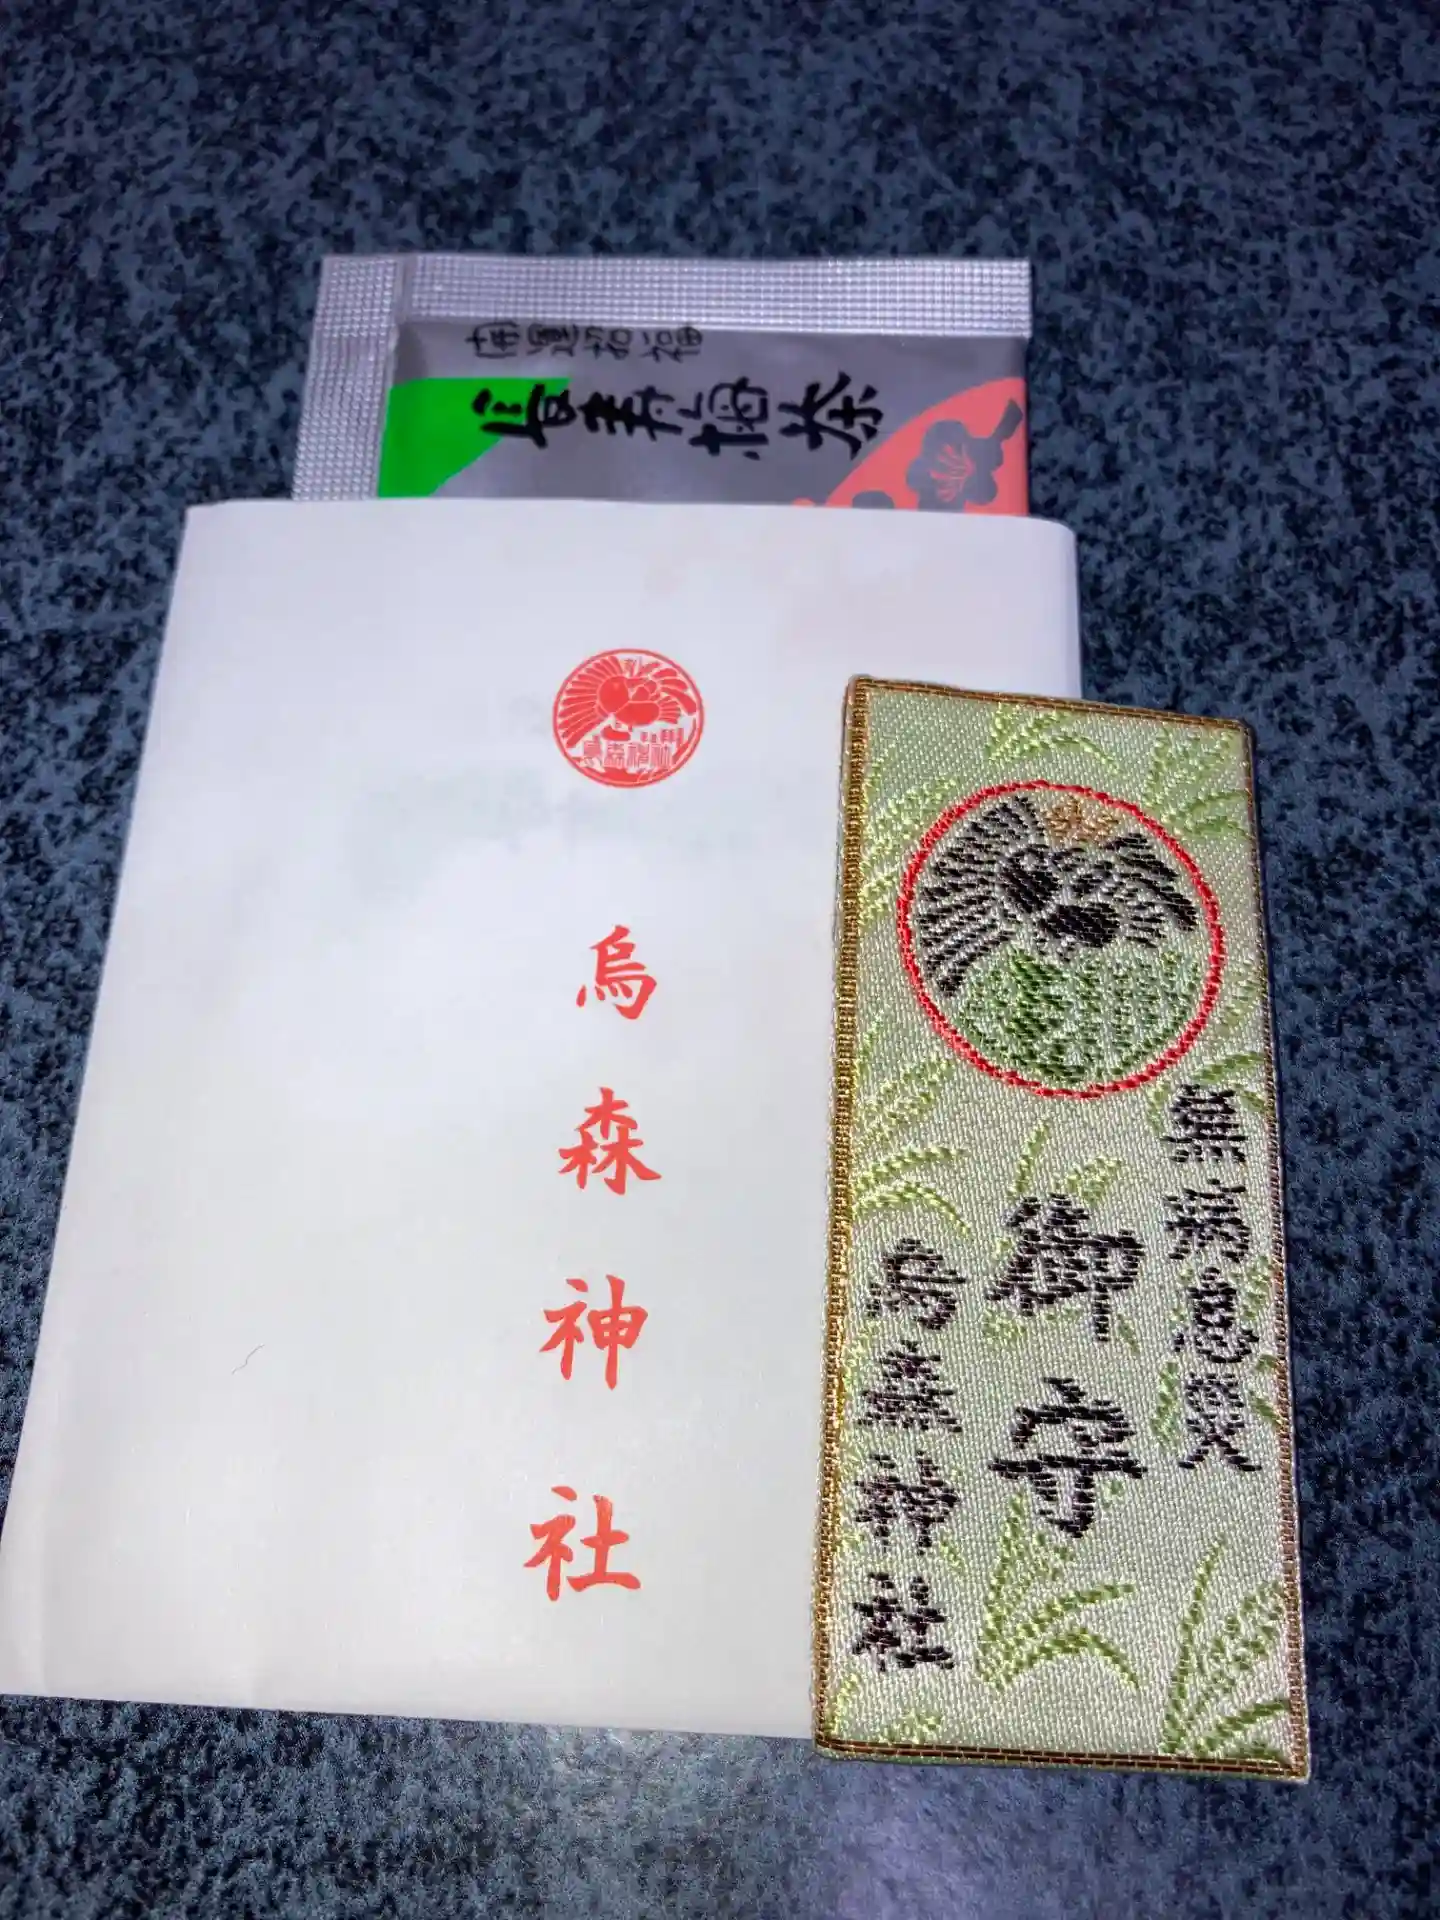 開運招福
宝寿梅茶
烏森神社
烏森神社
無病息災
御守
烏森神社